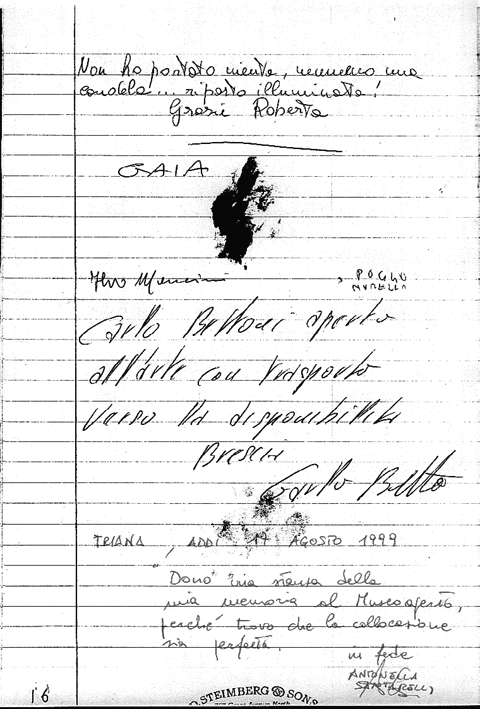 Non ho portato niente, nemmeno una
candela... riparto illuminata!
Grazie Roberta
GAIA
Ivo Mancini , POGGIO
MURELLA
Carlo Bettoni aperto
all'arte con trasporto
verso la disponibilità
Brescia
Carlo
TRIANA, ADDÌ 17 AGOSTO 1999
"Dono" una stanza della
mia memoria al Museo aperto,
perché trovo che la collocazione
sia perfetta.
in fede
ANTONELLA
SANTARELLI
16
O. STEIMBERG & SONS